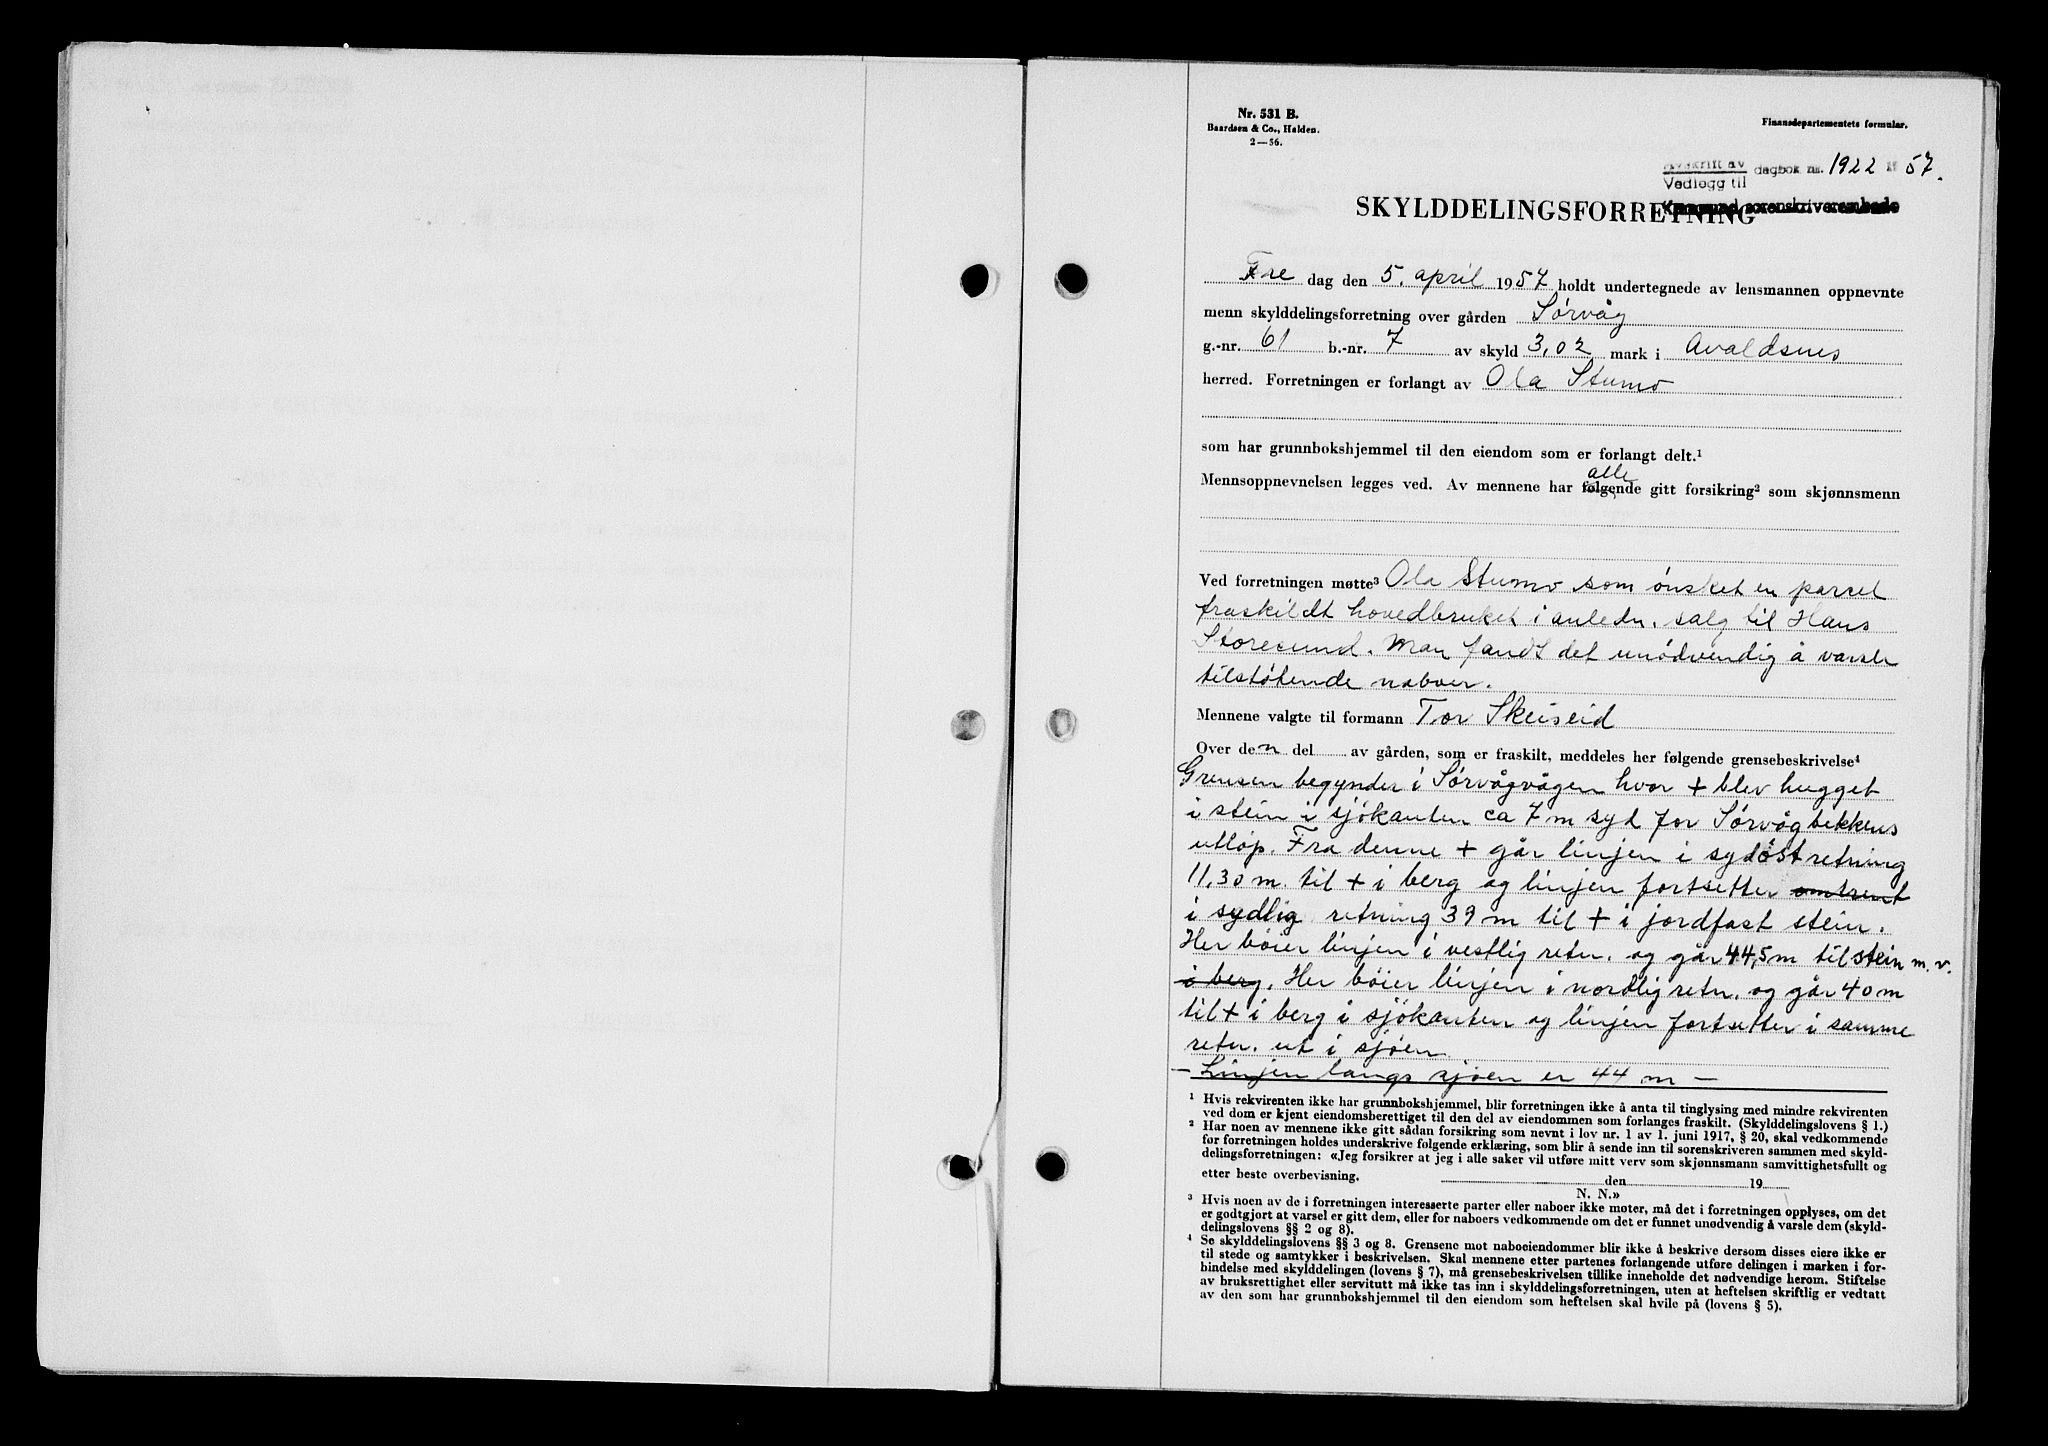 Nr. 531 B.
Baardsen & Co., Halden.
2—56.
Finansdepartementets formular.
Avskrift av
Vedlegg til dagbok nr. 1922 19 57.
Karmsund sorenskriverembede
SKYLDDELINGSFORRETNING
Fre dag den 5. april 1957 holdt undertegnede av lensmannen oppnevnte
menn skylddelingsforretning over gården Sørvåg
g.-nr. 61 b.-nr. 7 av skyld 3,02 mark i Avaldsnes
herred. Forretningen er forlangt av Ola Stumo
som har grunnbokshjemmel til den eiendom som er forlangt delt.¹
alle
Mennsoppnevnelsen legges ved. Av mennene har følgende gitt forsikring² som skjønnsmenn
Ved forretningen møtte³ Ola Stumo som ønsket en parsel
fraskildt hovedbruket i anledn. salg til Hans
Storesund. Man fandt det unødvendig å varsle
tilstøtende naboer.
Mennene valgte til formann Tor Skeiseid
Over den del av gården, som er fraskilt, meddeles her følgende grensebeskrivelse⁴
Grensen begynder i Sørvågvågen hvor + blev hugget
i stein i sjøkanten ca 7 m syd for Sørvågbekkens
utløp. Fra denne + går linjen i sydøst retning
11,30 m. til + i berg og linjen fortsetter omtrent
i sydlig retning 39 m til + i jordfast stein.
Her bøier linjen i vestlig retn. og går 44,5 m til stein m. v.
i berg. Her bøier linjen i nordlig retn. og går 40 m
til + i berg i sjøkanten og linjen fortsetter i samme
retn. ut i sjøen.
— Linjen langs sjøen er 44 m —
¹ Hvis rekvirenten ikke har grunnbokshjemmel, blir forretningen ikke å anta til tinglysing med mindre rekvirenten
ved dom er kjent eiendomsberettiget til den del av eiendommen som forlanges fraskilt. (Skylddelingslovens § 1.)
² Har noen av mennene ikke gitt sådan forsikring som nevnt i lov nr. 1 av 1. juni 1917, § 20, skal vedkommende
før forretningen holdes underskrive følgende erklæring, som blir å sende inn til sorenskriveren sammen med skyld-
delingsforretningen: «Jeg forsikrer at jeg i alle saker vil utføre mitt verv som skjønnsmann samvittighetsfullt og
etter beste overbevisning. den 19
N. N.»
³ Hvis noen av de i forretningen interesserte parter eller naboer ikke møter, må det i forretningen opplyses, om det
er godtgjort at varsel er gitt dem, eller for naboers vedkommende om det er funnet unødvendig å varsle dem (skyld-
delingslovens §§ 2 og 8).
⁴ Se skylddelingslovens §§ 3 og 8. Grensene mot naboeiendommer blir ikke å beskrive dersom disses eiere ikke er
til stede og samtykker i beskrivelsen. Skal mennene etter partenes forlangende utføre delingen i marken i for-
bindelse med skylddelingen (lovens § 7), må grensebeskrivelsen tillike inneholde det nødvendige herom. Stiftelse
av bruksrettighet eller servitutt må ikke tas inn i skylddelingsforretningen, uten at heftelsen skriftlig er vedtatt
av den som har grunnbokshjemmel til den eiendom som heftelsen skal hvile på (lovens § 5).